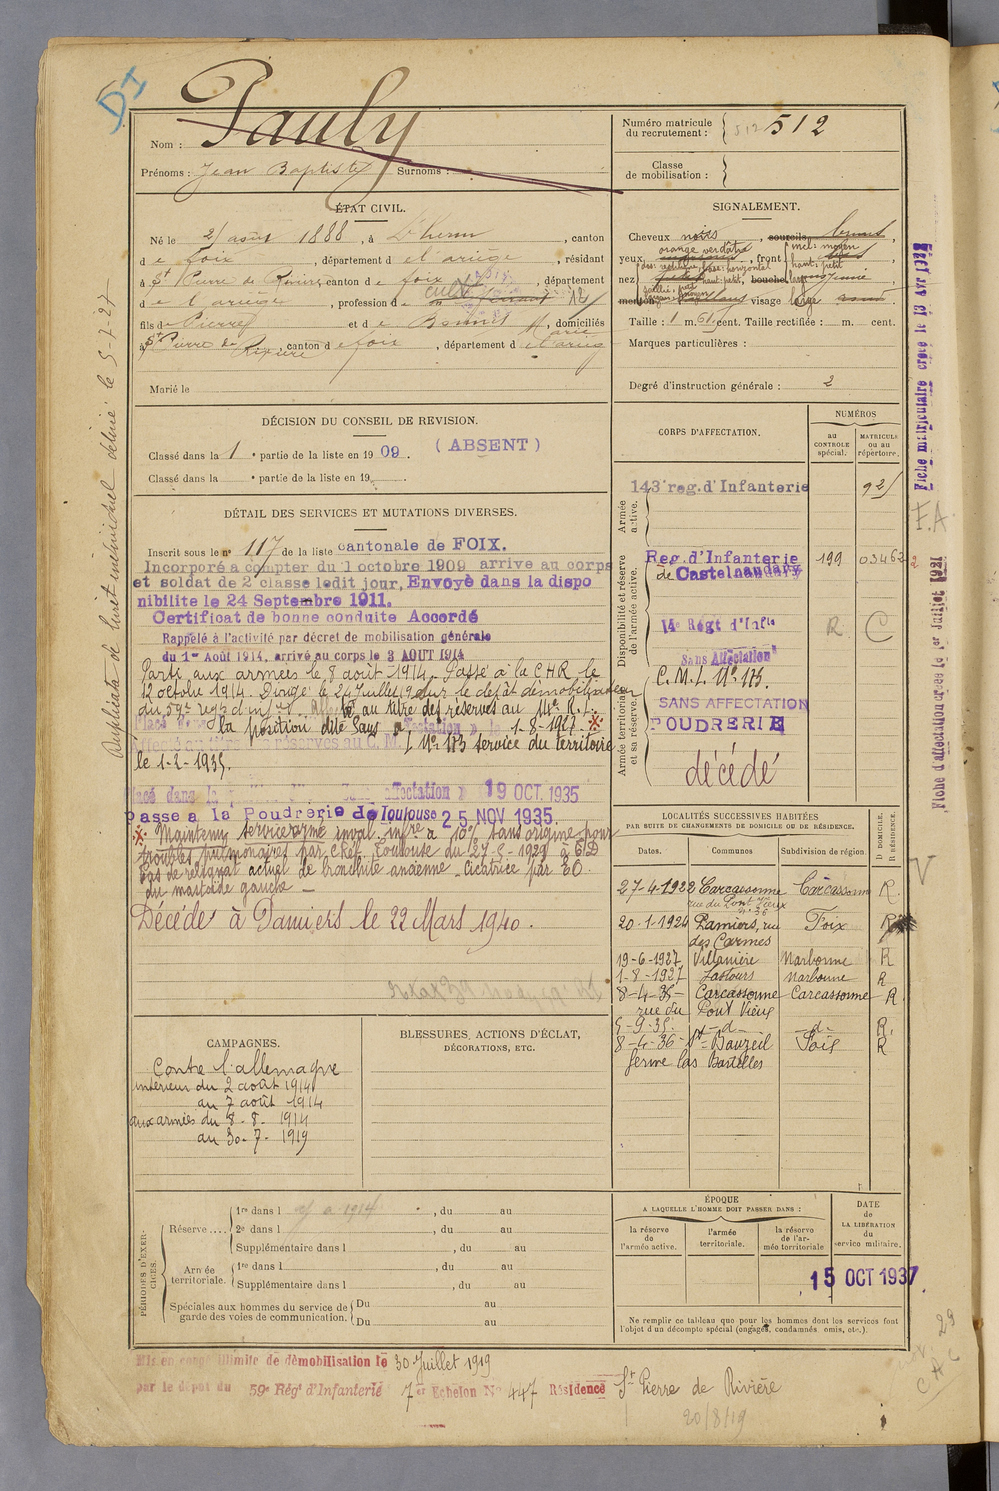 DI
Nom : Pauly
Prénoms : Jean Baptiste Surnoms :
Numéro matricule du recrutement : 512 512
Classe de mobilisation :
ÉTAT CIVIL.
Né le 2 août 1888, à L'herm, canton
de foix, département d l'ariège, résidant
à St Pierre de Rivière, canton de foix, département
de l'ariège, profession d cult
fils de Pierre et de Bonnet Marie, domiciliés
à St Pierre de Rivière, canton de foix, département d l'ariège
Marié le
SIGNALEMENT.
Cheveux noirs, sourcils bruns,
yeux orange verdâtre, front incl: moyen haut: petit
nez dos: rectiligne base: horizontal haut: petit, bouche
menton visage large
Taille : 1 m. 61 cent. Taille rectifiée : m. cent.
Marques particulières :
Degré d'instruction générale : 2
DÉCISION DU CONSEIL DE REVISION.
Classé dans la 1 partie de la liste en 1909. (ABSENT)
Classé dans la partie de la liste en 19
DÉTAIL DES SERVICES ET MUTATIONS DIVERSES.
Inscrit sous le n° 117 de la liste cantonale de FOIX.
Incorporé à compter du 1 octobre 1909 arrivé au corps
et soldat de 2e classe ledit jour, Envoyé dans la dispo
nibilité le 24 Septembre 1911.
Certificat de bonne conduite Accordé
Rappelé à l'activité par décret de mobilisation générale
du 1er Août 1914, arrivé au corps le 3 AOUT 1914
Parti aux armées le 8 août 1914. Passé à la C.H.R. le
12 octobre 1914. Dirigé le 24 Juillet 19 sur le dépôt démobilisateur
du 59e regt d'infie. au titre des réserves au 14e R.I.
Placé dans la position dite Sans affectation le 1-8-1927. *
Affecté au titre des réserves au C.M.I. N° 173 service du territoire
le 1-2-1935.
Placé dans la position dite Sans affectation 19 OCT. 1935
passe à la Poudrerie de Toulouse 25 NOV 1935.
* Maintenu service armé inval. infre à 10% sans origine pour
troubles pulmonaires par CRef. Toulouse du 27-8-1929 à 6 D
Pas de reliquat actuel de bronchite ancienne. Cicatrice par EO.
du mastoïde gauche
Décédé à Pamiers le 22 Mars 1940.
CORPS D'AFFECTATION.
NUMÉROS
au CONTROLE spécial.
MATRICULE ou au répertoire.
Armée active.
143e reg. d'Infanterie 921
Disponibilité et réserve de l'armée active.
Reg. d'Infanterie 199 03462
de Castelnaudary
14e Régt d'Infie R C
Sans Affectation
Armée territoriale et sa réserve.
C.M.I. N° 173.
SANS AFFECTATION
POUDRERIE
décédé
LOCALITÉS SUCCESSIVES HABITÉES
PAR SUITE DE CHANGEMENTS DE DOMICILE OU DE RÉSIDENCE.
Dates. Communes Subdivision de région. D DOMICILE. R RÉSIDENCE.
27-4-1922 Carcassonne Carcassonne R.
rue du Pont Vieux n° 36
20-1-1924 Pamiers, rue Foix R
des Carmes
19-6-1927 Villanière Narbonne R
1-8-1927 Lastours Narbonne R
8-4-35 Carcassonne Carcassonne R.
rue du Pont Vieux
5-9-35. -d- -d- R.
8-4-36 St Bauzeil Foix R
ferme las Bastilles
CAMPAGNES.
Contre l'allemagne
intérieur du 2 août 1914
au 7 août 1914
aux armées du 8-8-1914
au 30-7-1919
BLESSURES, ACTIONS D'ÉCLAT,
DÉCORATIONS, ETC.
PÉRIODES D'EXERCICES.
Réserve.... 1re dans l , du au
2e dans l , du au
Supplémentaire dans l , du au
Armée territoriale. 1re dans l , du au
Supplémentaire dans l , du au
Spéciales aux hommes du service de garde des voies de communication. Du au
Du au
ÉPOQUE
A LAQUELLE L'HOMME DOIT PASSER DANS :
la réserve de l'armée active.
l'armée territoriale.
la réserve de l'armée territoriale
DATE de LA LIBÉRATION du service militaire.
15 OCT 1937
Ne remplir ce tableau que pour les hommes dont les services font
l'objet d'un décompte spécial (engagés, condamnés, omis, etc.).
Mis en congé illimité de démobilisation le 30 Juillet 1919
par le dépôt du 59e Rég' d'Infanterie 7e Echelon N° 447 Résidence St Pierre de Rivière
20/8/19
Duplicata de livret individuel délivré le 5-7-27
Fiche matriculaire créée le 13 AVR 1927
F.A.
Fiche d'affectation créée le 1er Juillet 1927
V